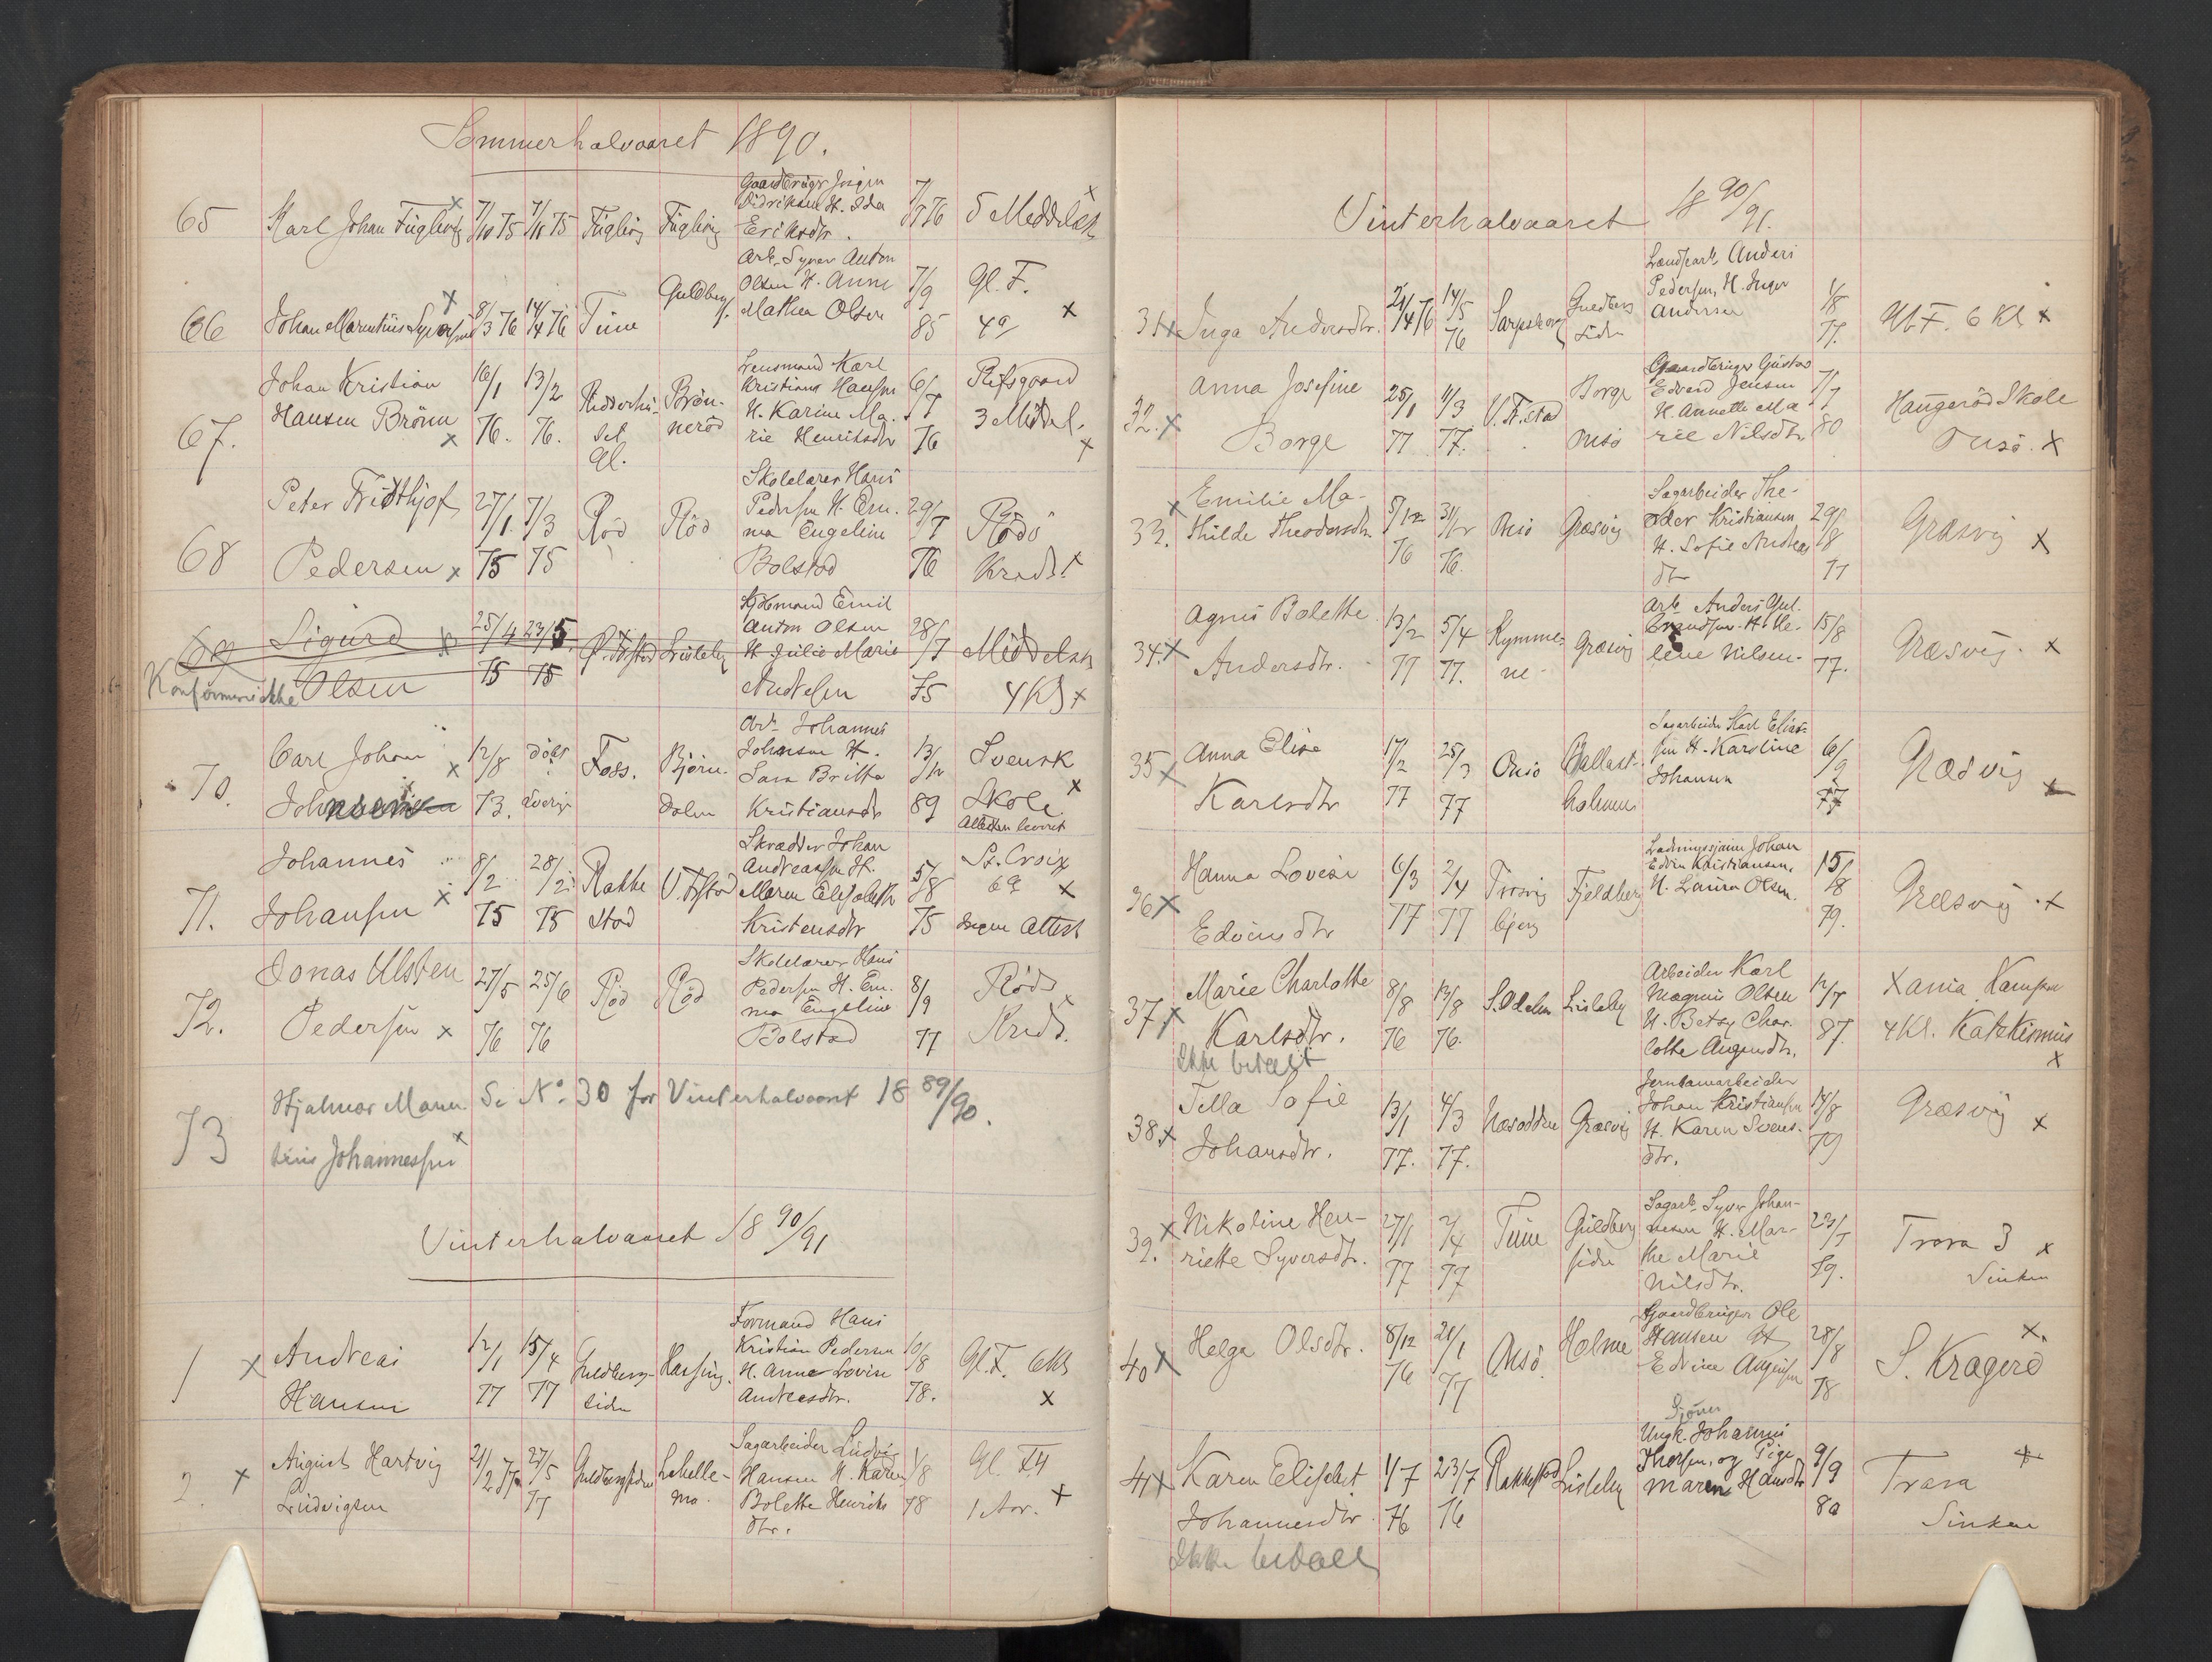 Sommerhalvaaret 1890.
65 Karl Johan Fuglevig x 7/10 75 7/11 75 Fuglevig Fuglevig
Gaardbruger Jørgen
Didriksen H. Ida
Eriksdtr.
7/7 76 5 Meddelsk x
66 Johan Marentius Syversen x 8/3 76 14/4 76 Tune Guldbergs.
Arb. Syver Anton
Olsen H. Anne
Mathea Olsen
7/9 85 Gl. F. 4a x
67. Johan Kristian
Hansen Brønn x
16/1 76. 13/2 76. Brønnerød
Lensmand Karl
Kristians Hansen
H. Karine Ma-
rie Henriksdtr
6/7 76
3 Middel. x
68 Peter Fridthjof
Pedersen x
27/1 75 7/3 75 Rød Rød
Skolelærer Hans
Pedersen H. Em-
ma Engeline
Bolstad
29/7 76 Røds
Kreds x
69 Sigurd x
Konfirmeres ikke Olsen
25/4 75 23/5 75 Ø. Fr.stad Lisleby
Anton Olsen
H. Julie Marie
Andresen
28/7 75 Middelsk
4 Kl x
70. Carl Johan x
12/8 73. døbt i Sverige Foss. Bjørn-
dalen
Arb. Johannes
Johnsen H.
Sara Britta
Kristiansdtr
13/12 89 Svensk
Skole x
Attesten leveret
71. Johannes
Johansen x
8/2 75 28/2 75 Rakke
stad
V. Frstad
Skrædder Johan
Andreassen H.
Maren Elisabeth
Kristensdtr
5/8 75 St. Croix
6a x
Ingen Attest
72. Jonas Ulsten
Pedersen x
27/5 76 25/6 76 Rød Rød
Skolelærer Hans
Pedersen H. Em-
ma Engeline
Bolstad
8/9 77 Røds
Kreds. x
73 Hjalmar Maren-
tius Johannessen x
Se No. 30 for Vinterhalvaaret 18 89/90.
Vinterhalvaaret 18 90/91
1 x Andreas
Hansen
12/1 77 15/4 77 Guldberg-
siden
Hassing.
Formand Hans
Kristian Pedersen
H. Anne Lovise
Andreasdtr.
10/8 78. Gl. F. 6 Kl
x
2. x August Hartvig
Ludvigsen
21/2 77 27/5 77 Guldbergsiden Labelle-
Sagarbeider Ludvig
Hansen H. Karen
Bolette Henriks
dtr.
1/8 78 Gl. F4
1 Aar. x
Vinterhalvaaret 18 90/91.
31 x Inga Andersdtr. 21/4 76 14/5 76 Sarpsborg Guldberg
siden
Anders
Pedersen, H. Inger
Andersen
1/8 77. Gl. F. 6 Kl x
32. x Anna Josefine
Borge
25/1 77 11/3 77. V. Fr.stad Borge
Onsø
Gaardbruger Gustav
Edvard Jensen
H. Annette Ma
rie Nilsdtr
7/7 80 Haugerød Skole
Onsø. x
33. x Emilie Ma-
thilde Theodorsdtr
5/12 76 31/12 76. Onsø Græsvig
Sagarbeider The-
odor Kristiansen
H. Sofie Andreas
dtr
29/8 77 Græsvig x
34. x Agnes Bolette
Andersdtr.
13/2 77 5/4 77. Kymme-
ne
Græsvig
Arb. Anders Gul-
brandsen H. He-
lene Nilsen
15/8 77. Græsvig. x
35 x Anna Elise
Karlsdtr
17/2 77 25/3 77 Onsø Ballast-
holmen
Sagarbeider Karl Elias-
sen H. Karoline
Johansen
6/9 77 Græsvig x
36 x Hanna Lovise
Edvinsdtr
6/3 77 2/4 77 Trosvig
bjerg
Fjeldberg
Johan
Edvin Kristiansen,
H. Laura Olsen.
15/8 79. Græsvig. x
37. x Marie Charlotte
Karlsdtr.
Ikke betalt
8/8 76 13/8 76. Lisleby
Arbeider Karl
Magnus Olsen
H. Betsy Char-
lotte Augustdtr.
12/7 87. Xania Kampen
4 Kl. Katekismus
x
38. x Tella Sofie
Johansdtr.
13/1 77. 4/3 77. Næsodden Græsvig
Jernbanearbeider
Johan Kristiansen
H. Karen Svens-
dtr.
14/8 79 Græsvig x
39. x Nikoline Hen-
riette Syversdtr.
27/1 77 2/4 77 Tune Guldberg
siden
Sagarb. Syver Johan-
nesen H. Mar-
the Marie
Nilsdtr.
23/7 89. Trara 3 x
Sinken
40 x Helga Olsdtr. 8/12 76 21/1 77 Onsø Holme
Gaardbruger Ole
Hansen H
Edvine Augusten
28/8 78 x.
S. Kragerø
41 x Karen Elisabet
Johannesdtr
Ikke betalt
1/7 76 23/7 76 Rakkestad Lisleby
Ungk. Johannes
Thorsen, og Pige
Maren Hansdtr
9/9 80 Trara x
Sinken